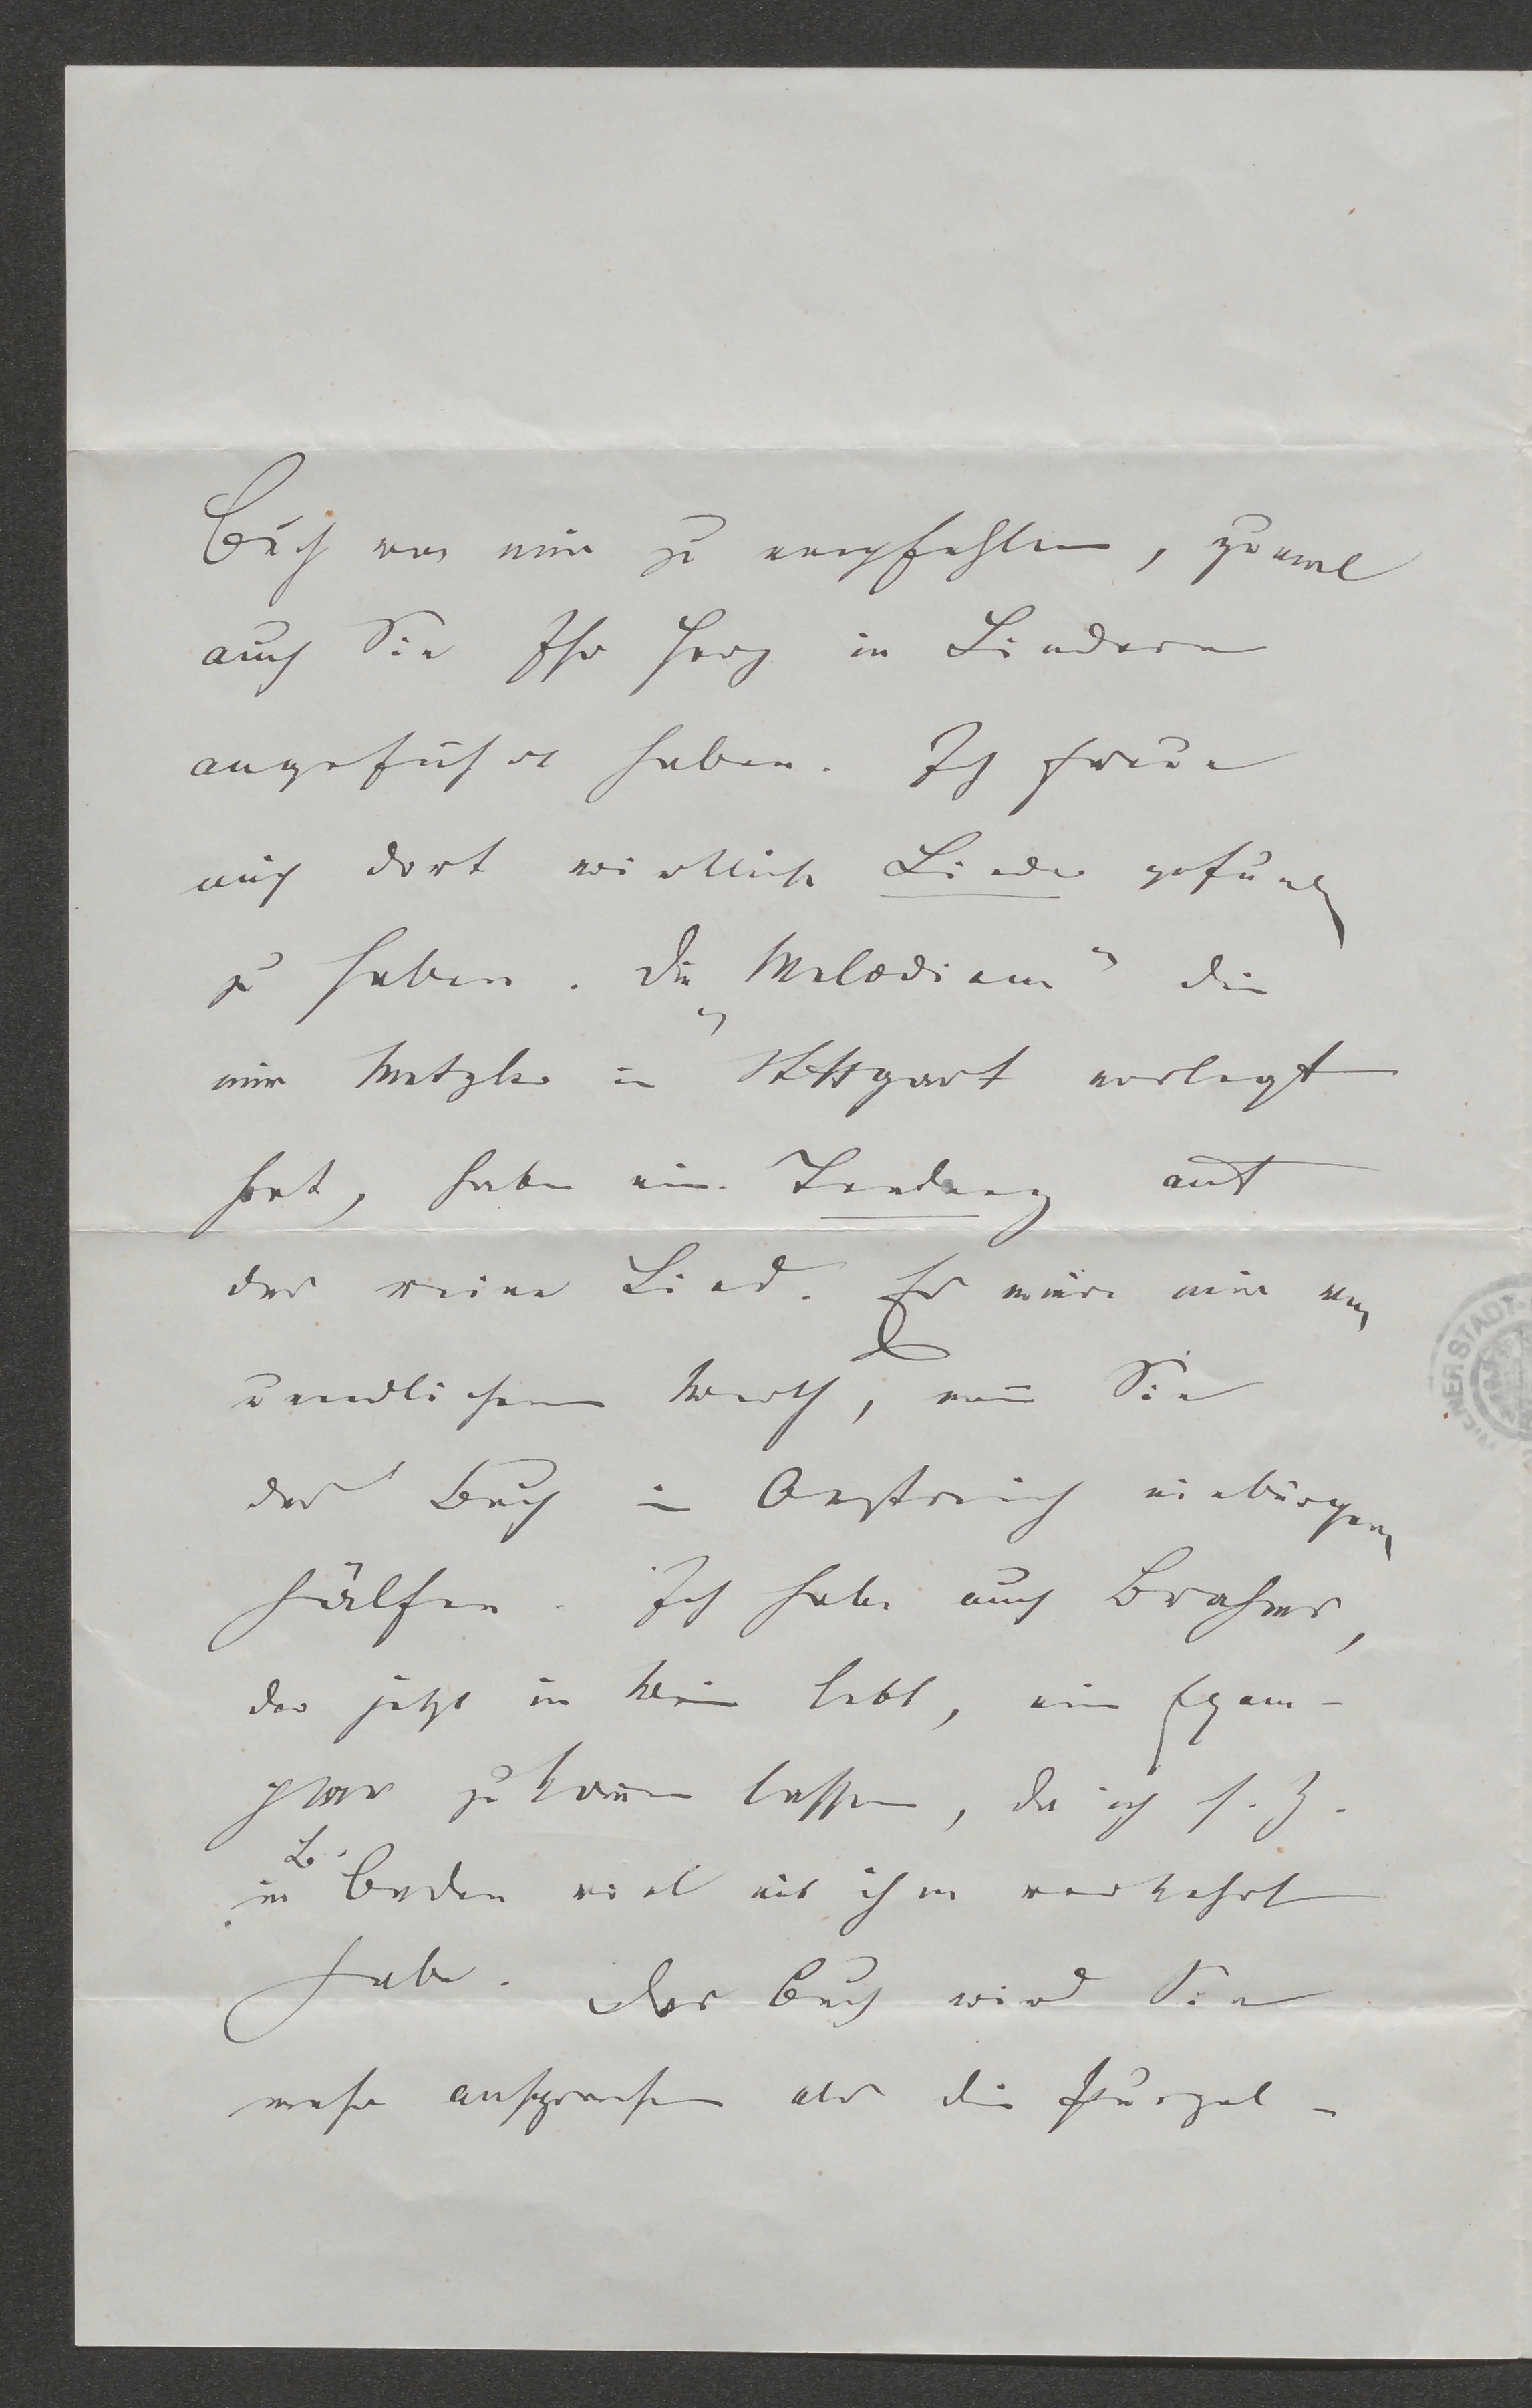 Buch von mir zu empfehlen, zumal
auch Sie Ihr Herz in Liedern
angeführt haben. Ich freue
mich dort wirkliche Lieder gefunden
zu haben. Die „Melodieen“ die
mir Metzler in Stuttgart verlegt
hat, haben eine Tendenz auf
das reine Lied. Es wäre mir von
unendlichem Werth, wenn Sie
das Buch in Oestreich einbürgern
hälfen. Ich habe auch Brahms,
der jetzt in Wien lebt, ein Exem-
plar zukommen lassen, da ich s. Z.
in B. Baden viel mit ihm verkehrt
habe. Das Buch wird Sie
mehr ansprechen als die
WIENER STADT-